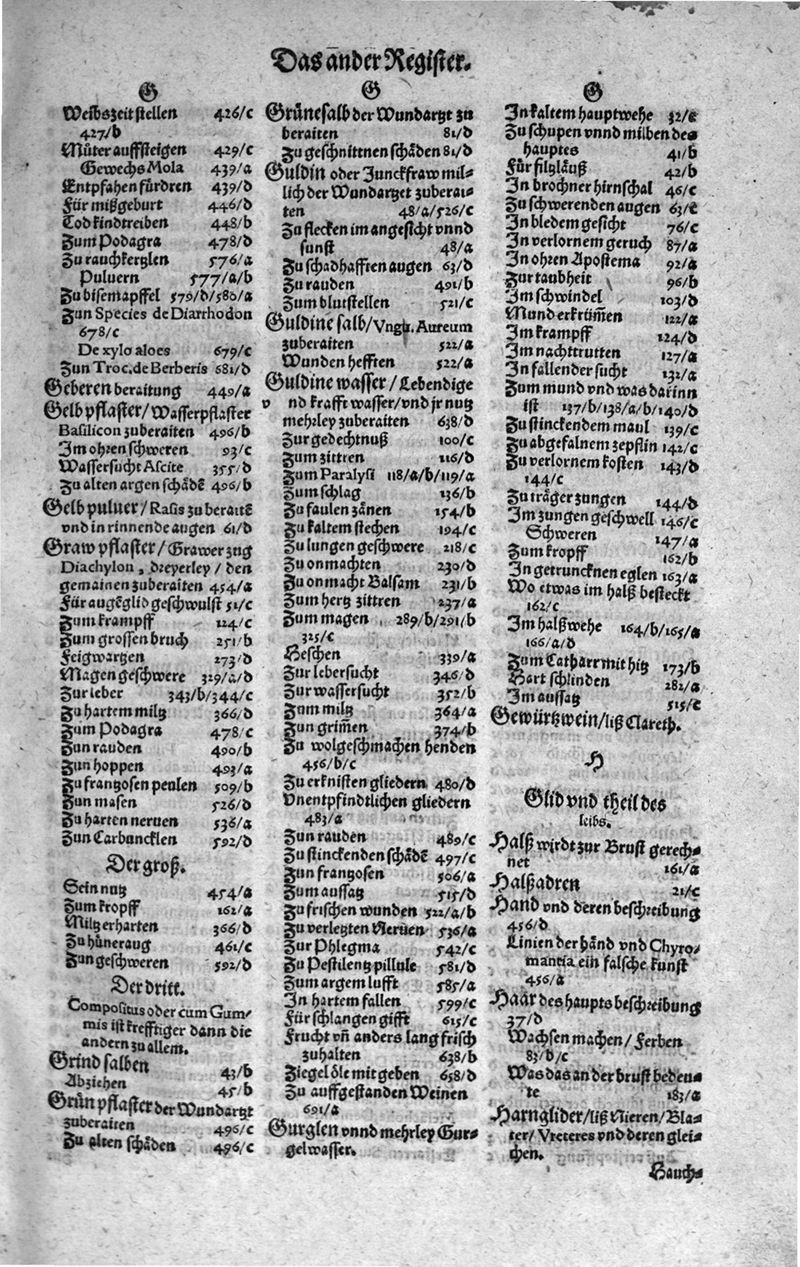 Das ander Register.
G
Weibszeit stellen 426/c
427/b
Můter auffsteigen 429/c
Gewechs Mola 439/a
Entpfahen fürdren 439/d
Für mißgeburt 446/d
Tod kindtreiben 448/b
Zum Podagra 478/d
Zu rauchkertzlen 576/a
Puluern 577/a/b
Zu bisemapffel 579/d/580/a
Zun Species de Diarrhodon
678/c
De xylo aloes 679/c
Zun Troc. de Berberis 681/d
Geberen beraitung 449/a
Gelb pflaster/Wasserpflaster
Basilicon zuberaiten 496/b
Im ohren schweren 93/c
Wassersucht Ascite 355/d
Zu alten argen schädẽ 496/b
Gelb puluer/Rasis zu beraitẽ
vnd in rinnende augen 61/d
Graw pflaster/Grawer zug
Diachylon, dreyerley/den
gemainen zuberaiten 454/a
Für augẽglid geschwulst 51/c
Zum krampff 124/c
Zum grossen bruch 251/b
Feigwartzen 273/d
Magen geschwere 329/a/d
Zur leber 343/b/344/c
Zu hartem miltz 366/d
Zum Podagra 478/c
Zun rauden 490/b
Zun hoppen 493/a
Zu frantzosen peulen 509/b
Zun masen 526/d
Zu harten neruen 536/a
Zun Carbuncklen 592/d
Der groß.
Sein nutz 454/a
Zum kropff 162/a
Miltz erharten 366/d
Zu hüneraug 461/c
Zun geschweren 592/d
Der dritt.
Compositus oder cum Gum-
mis ist krefftiger dann die
andern zu allem.
Grind salben 43/b
Abziehen 45/b
Grün pflaster der Wundartzt
zuberaiten 496/c
Zu alten schäden 496/c
G
Grünesalb der Wundartzt zu
beraiten 81/d
Zu geschnittnen schäden 81/d
Guldin oder Junckfraw mil-
lich der Wundartzet zuberai-
ten 48/a/526/c
Zu flecken im angesicht vnnd
sunst 48/a
Zu schadhafften augen 63/d
Zu rauden 491/b
Zum blutstellen 521/c
Guldine salb/Vngu. Aureum
zuberaiten 522/a
Wunden hefften 522/a
Guldine wasser/Lebendige
vnd krafft wasser/vnd jr nutz
mehrley zuberaiten 638/d
Zur gedechtnuß 100/c
Zum zittren 116/d
Zum Paralysi 118/a/b/119/a
Zum schlag 136/b
Zu faulen zänen 154/b
Zu kaltem stechen 194/c
Zu lungen geschwere 218/c
Zu onmachten 230/d
Zu onmacht Balsam 231/b
Zum hertz zittren 237/a
Zum magen 289/b/291/b
325/c
Heschen 339/a
Zur lebersucht 346/d
Zur wassersucht 352/b
Zum miltz 364/a
Zun grim̃en 374/b
Zu wolgeschmachen henden
456/b/c
Zu erknisten gliedern 480/d
Vnentpfindtlichen gliedern
483/a
Zun rauden 489/c
Zu stinckenden schädẽ 497/c
Zun frantzosen 506/a
Zum aussatz 515/d
Zu frischen wunden 522/a/b
Zu verletzten Neruen 536/a
Zur Phlegma 542/c
Zu Pestilentz pillule 581/d
Zum argem lufft 585/a
In hartem fallen 599/c
Für schlangen gifft 615/c
Frucht vñ anders lang frisch
zuhalten 638/b
Ziegel öle mit geben 658/d
Zu auffgestanden Weinen
691/a
Gurglen vnnd mehrley Gur-
gelwasser.
G
In kaltem hauptwehe 32/c
Zu schupen vnnd milben des
hauptes 41/b
Für filtzläuß 42/b
In brochner hirnschal 46/c
Zu schwerenden augen 63/c
In bledem gesicht 76/c
In verlornem geruch 87/a
In ohren Apostema 92/a
Zur taubheit 96/b
Im schwindel 103/d
Mund erkrüm̃en 122/a
Im krampff 124/d
Im nachttrutten 127/a
In fallender sucht 132/a
Zum mund vnd was darinn
ist 137/b/138/a/b/140/d
Zu stinckendem maul 139/c
Zu abgefalnem zepflin 142/c
Zu verlornem kosten 143/d
144/c
Zu träger zungen 144/d
Im zungen geschwell 146/c
Schweren 147/a
Zum kropff 162/b
In getruncknen eglen 163/a
Wo etwas im halß besteckt
162/c
Im halßwehe 164/b/165/a
166/a/d
Zum Catharr mit hitz 173/b
Hart schlinden 282/a
Im aussatz 515/c
Gewürtzwein/liß Clareth.
H
Glid vnd theil des
leibs.
Halß wirdt zur Brust gerech-
net 161/a
Halßadren 21/c
Hand vnd deren beschreibung
456/d
Linien der händ vnd Chyro-
mantia ein falsche kunst
456/a
Haar des haupts beschreibung
37/d
Wachsen machen/Ferben
83/b/c
Was das an der brust bedeu-
te 183/a
Harnglider/liß Nieren/Bla-
ter/Vreteres vnd deren glei-
chen.
Hauch-